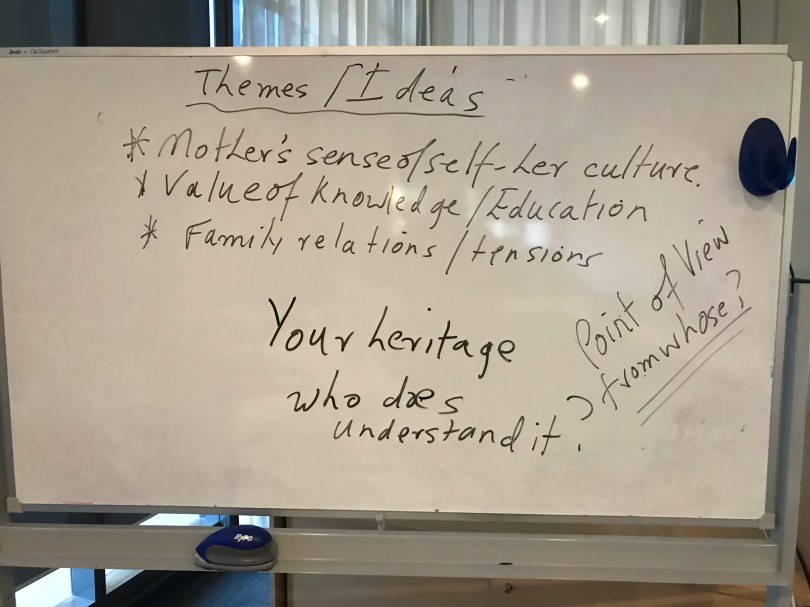 Themes / Ideas
* Mother's sense of self - her culture.
* Value of knowledge / Education
* Family relations / tensions
Your heritage
who does
understand it?
Point of View
from whose?
EXPO